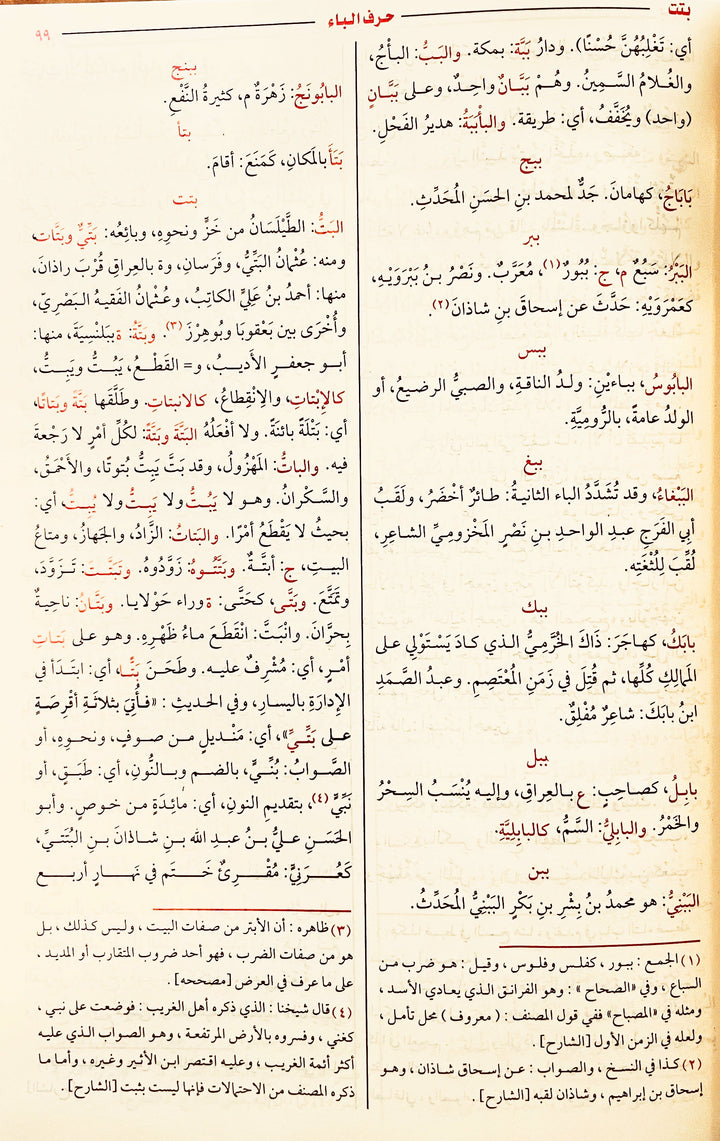 بتت
حرف الباء
٩٩
أي: تَغْلِبُهُنَّ حُسْنًا). ودارُ بَبَّةَ: بمكة. والبَبُّ: البأجُ،
والغُلامُ السَّمِينُ. وهُمْ بَبَّانٌ واحِدٌ، وعلى بَبَّانٍ
(واحد) ويُخَفَّفُ، أي: طريقة. والبأْبَبَةُ: هديرُ الفَحْلِ.
ببج
بَابَاجُ، كهامانَ. جَدٌّ لمحمد بنِ الحَسَنِ المُحَدِّثِ.
ببر
البَبْرُ: سَبُعٌ م، ج: بُبُورٌ(١)، مُعَرَّبٌ. ونَصْرُ بنُ بَبْرَوَيْهِ،
كعَمْرَوَيْهِ: حَدَّثَ عن إسحاقَ بنِ شاذانَ(٢).
ببس
البابُوسُ، بباءَيْنِ: ولدُ الناقةِ، والصبيُّ الرضيعُ، أو
الولدُ عامةً، بالرُّومِيَّةِ.
ببغ
البَبْغاءُ، وقد تُشَدَّدُ الباء الثانيةُ: طائرٌ أخْضَرُ، ولَقَبُ
أبي الفَرَجِ عبدِ الواحدِ بنِ نَصْرٍ المَخْزومِيِّ الشاعرِ،
لُقِّبَ لِلُثْغَتِه.
ببك
بابَكُ، كهاجَرَ: ذَاكَ الخُرَّمِيُّ الذي كادَ يَسْتَوْلِي على
المَمالِكِ كُلِّها، ثم قُتِلَ في زَمَنِ المُعْتَصِمِ. وعبدُ الصَّمَدِ
ابنُ بابَكَ: شاعِرٌ مُفْلِقٌ.
ببل
بابِلُ، كصاحِبٍ: ع بالعِراقِ، وإليه يُنْسَبُ السِحْرُ
والخَمْرُ. والبابِليُّ: السَّمُّ، كالبابِلِيَّةِ.
ببن
البَبْنِيُّ: هو محمدُ بنُ بِشْرِ بنِ بَكْرٍ البَبْنِيُّ المُحَدِّثُ.
(١) الجمع : ببور ، كفلس وفلوس ، وقيل : هو ضرب من
السباع ، وفي «الصحاح» : وهو الفرانق الذي يعادي الأسد ،
ومثله في «المصباح» ففي قول المصنف : (معروف) محل تأمل ،
ولعله في الزمن الأول [الشارح] .
(٢) كذا في النسخ ، والصواب : عن إسحاق شاذان ، وهو
إسحاق بن إبراهيم ، وشاذان لقبه [الشارح] .
ببنج
البابُونَجُ: زَهْرَةٌ م، كثيرةُ النَّفْعِ.
بتأ
بَتَأَ بالمَكانِ، كمَنَعَ: أقامَ.
بتت
البَتُّ: الطَّيْلَسَانُ من خَزٍّ ونحوِهِ، وبائِعُه: بَتِّيٌّ وبَتَّات،
ومنه: عُثْمانُ البَتِّيُّ، وفَرَسانِ، وة بالعِراقِ قُرْبَ راذانَ،
منها: أحمدُ بنُ عَلِيٍّ الكاتِبُ، وعُثْمانُ الفَقيهُ البَصْرِيّ،
وأُخْرَى بين بَعْقوبَا وبُوهِرْزَ(٣). وبَتَّةُ: ة ببَلَنْسِيَةَ، منها:
أبو جعفرٍ الأَديبُ، و= القَطْعُ، يَبُتُّ ويَبِتُّ،
كالإِبْتاتِ، والانْقِطاعُ، كالانبتاتِ. وطَلَّقَها بَتَّةً وبَتاتًا،
أي: بَتْلَةً بائنَةً. ولا أفْعَلُهُ البَتَّةَ وبَتَّةً: لكُلِّ أمْرٍ لا رَجْعةَ
فيه. والباتُّ: المَهْزُولُ، وقد بَتَّ يَبِتُّ بُتوتًا، والأحْمَقُ،
والسَّكْرانُ. وهو لا يَبُتُّ ولا يَبِتُّ ولا يُبِتُّ، أي:
بحيثُ لا يَقْطَعُ أمْرًا. والبَتاتُ: الزَّادُ، والجَهازُ، ومتاعُ
البيتِ، ج: أبتَّةٌ. وبَتَّتُوهُ: زَوَّدُوهُ. وتَبَتَّتَ: تَزَوَّدَ،
وتَمَتَّعَ. وبَتَّى، كحَتَّى: ة وراء حَوْلايا. وبَتَّانُ: ناحيةٌ
بِحرَّانَ. وانْبَتَّ: انْقَطَعَ ماءُ ظَهْرِهِ. وهو على بَتاتِ
أمْرٍ، أي: مُشْرِفٌ عليه. وطَحَنَ بَتًّا، أي: ابتَدَأ في
الإدارَةِ باليسارِ، وفي الحديثِ : «فأُتِيَ بثلاثَةِ أقْرِصَةٍ
على بَتِّيٍّ»، أي: مَنْديلٍ من صوفٍ، ونحوِهِ، أو
الصَّوابُ: بُنِّيٍّ، بالضم وبالنُّونِ، أي: طَبَقٍ، أو
نَبِّيٍّ(٤)، بتقديمِ النونِ، أي: مائدَةٍ من خوصٍ. وأبو
الحَسَنِ عليُّ بنُ عبدِ الله بنِ شاذانَ بنِ البُتَتيِّ،
كَعُرَنِيٍّ: مُقْرِئٌ خَتَم في نَهارٍ أربع
(٣) ظاهره : أن الأبتر من صفات البيت ، وليس كذلك ، بل
هو من صفات الضرب ، فهو أحد ضروب المتقارب أو المديد ،
على ما عرف في العرض [مصححه] .
(٤) قال شيخنا : الذي ذكره أهل الغريب : فوضعت على نبي ،
كغني ، وفسروه بالأرض المرتفعة ، وهو الصواب الذي عليه
أكثر أئمة الغريب ، وعليه اقتصر ابن الأثير وغيره ، وأما ما
ذكره المصنف من الاحتمالات فإنها ليست بثبت [الشارح] .